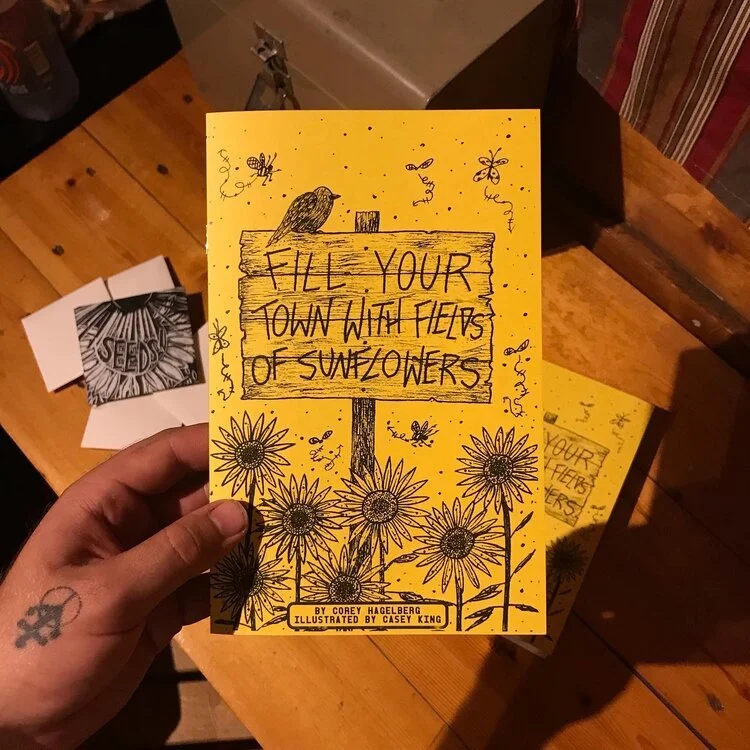 FILL YOUR
TOWN WITH FIELDS
OF SUNFLOWERS
BY COREY HAGELBERG
ILLUSTRATED BY CASEY KING
SEEDS
YOUR
FIELDS
ERS